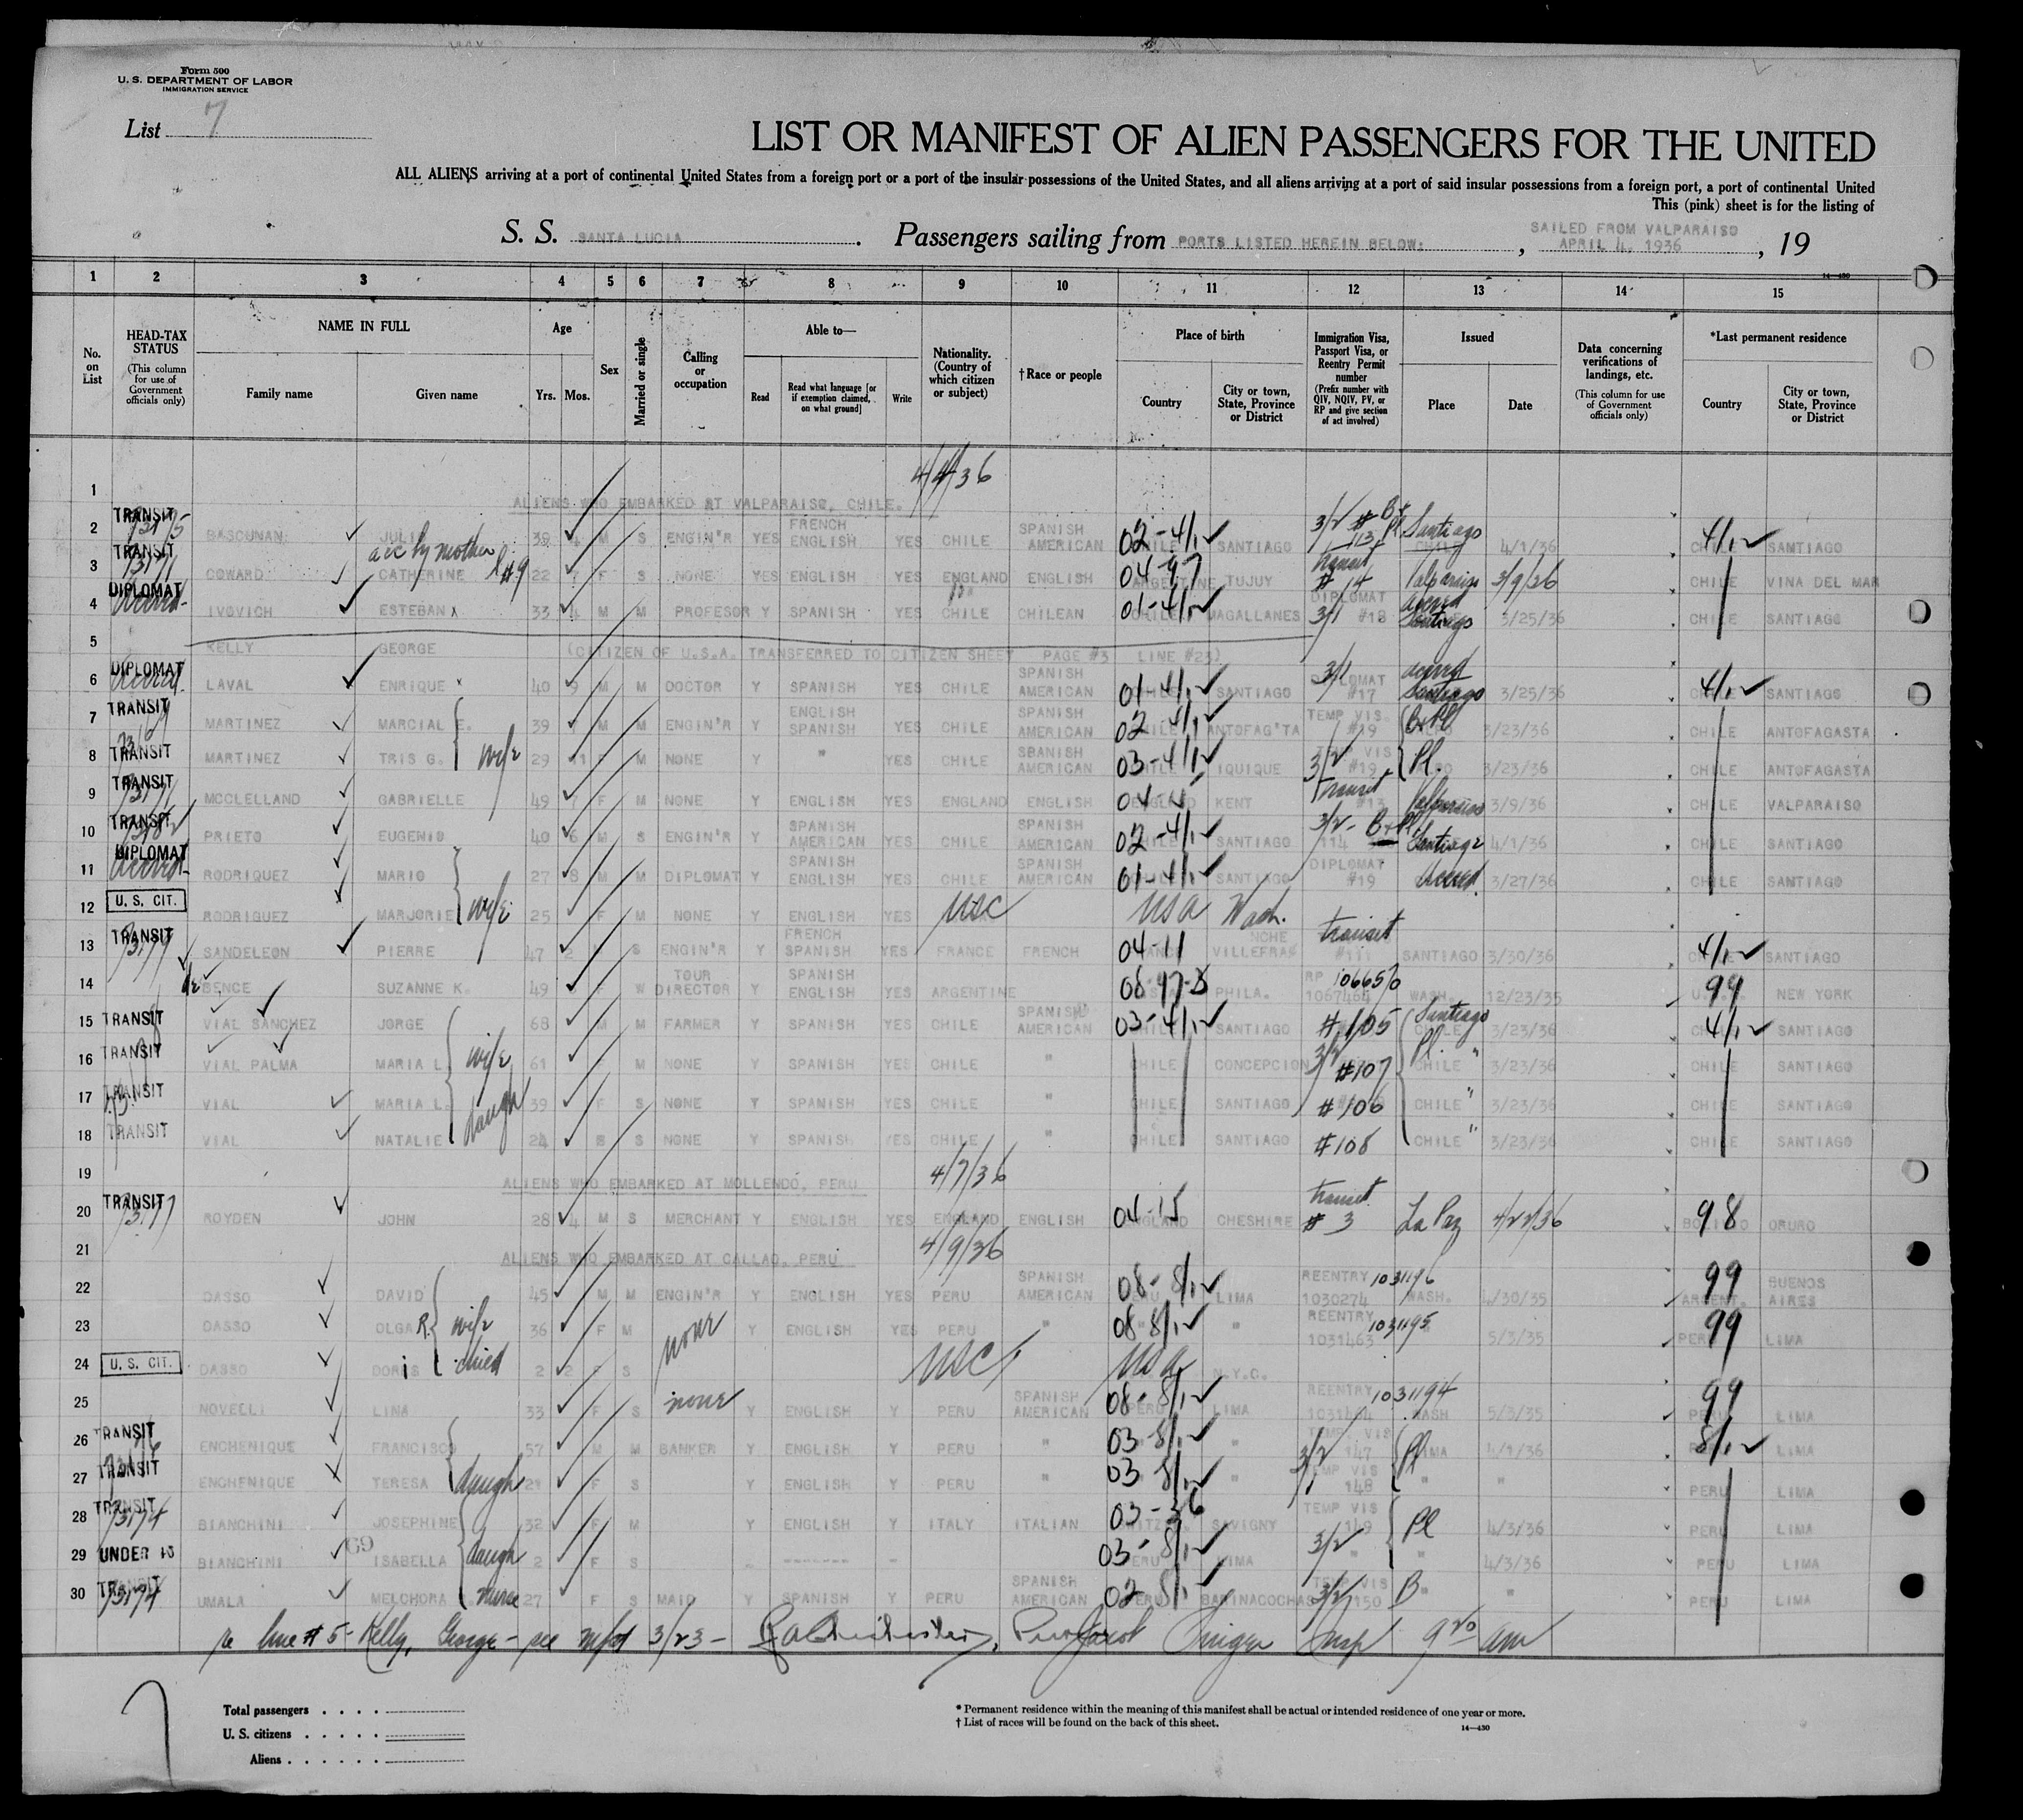 Form 500
U. S. DEPARTMENT OF LABOR
IMMIGRATION SERVICE
List 7
LIST OR MANIFEST OF ALIEN PASSENGERS FOR THE UNITED
ALL ALIENS arriving at a port of continental United States from a foreign port or a port of the insular possessions of the United States, and all aliens arriving at a port of said insular possessions from a foreign port, a port of continental United
This (pink) sheet is for the listing of
S. S. SANTA LUCIA. Passengers sailing from PORTS LISTED HEREIN BELOW: , SAILED FROM VALPARAISO APRIL 4, 1936 , 19
14—430
1 2 3 4 5 6 7 8 9 10 11 12 13 14 15
No. on List
HEAD-TAX STATUS (This column for use of Government officials only)
NAME IN FULL Family name Given name
Age Yrs. Mos.
Sex
Married or single
Calling or occupation
Able to— Read Read what language [or if exemption claimed, on what ground] Write
Nationality. (Country of which citizen or subject)
†Race or people
Place of birth Country City or town, State, Province or District
Immigration Visa, Passport Visa, or Reentry Permit number (Prefix number with QIV, NQIV, PV, or RP and give section of act involved)
Issued Place Date
Data concerning verifications of landings, etc. (This column for use of Government officials only)
*Last permanent residence Country City or town, State, Province or District
1 ALIENS WHO EMBARKED AT VALPARAISO, CHILE. 4/4/36
2 TRANSIT BASCUNAN JULIO 39 4 M S ENGIN'R YES FRENCH ENGLISH YES CHILE SPANISH AMERICAN 02-4/1 SANTIAGO 3/2 # 113 Santiago 4/1/36 4/1 SANTIAGO
acc by mother l#9
3 TRANSIT COWARD CATHERINE 22 7 F S NONE YES ENGLISH YES ENGLAND ENGLISH 04-97 ARGENTINE TUJUY Transit # 14 Valparaiso 3/9/36 CHILE VINA DEL MAR
4 DIPLOMAT IVOVICH ESTEBAN 33 4 M M PROFESOR Y SPANISH YES CHILE CHILEAN 01-4/1 MAGALLANES DIPLOMAT 3/1 #18 Santiago 3/25/36 CHILE SANTIAGO
5 KELLY GEORGE (CITIZEN OF U.S.A. TRANSFERRED TO CITIZEN SHEET PAGE #3 LINE #23)
6 DIPLOMAT LAVAL ENRIQUE 40 9 M M DOCTOR Y SPANISH YES CHILE SPANISH AMERICAN 01-4/1 SANTIAGO 3/1 DIPLOMAT #17 Santiago 3/25/36 4/1 SANTIAGO
7 TRANSIT MARTINEZ MARCIAL E. 39 M M ENGIN'R Y ENGLISH SPANISH YES CHILE SPANISH AMERICAN 02-4/1 ANTOFAG'TA TEMP VIS. #19 3/23/36 CHILE ANTOFAGASTA
8 TRANSIT MARTINEZ TRIS G. wife 29 11 F M NONE Y " YES CHILE SPANISH AMERICAN 03-4/1 IQUIQUE TEMP VIS 3/2 #19 Pl. 3/23/36 CHILE ANTOFAGASTA
9 TRANSIT MCCLELLAND GABRIELLE 49 F M NONE Y ENGLISH YES ENGLAND ENGLISH KENT Transit #13 Valparaiso 3/9/36 CHILE VALPARAISO
10 TRANSIT PRIETO EUGENIO 40 6 M S ENGIN'R Y SPANISH AMERICAN YES CHILE SPANISH AMERICAN 02-4/1 SANTIAGO 3/2- 114 Santiago 4/1/36 CHILE SANTIAGO
11 DIPLOMAT RODRIQUEZ MARIO 27 8 M M DIPLOMAT Y SPANISH ENGLISH YES CHILE SPANISH AMERICAN 01-4/1 SANTIAGO DIPLOMAT #19 3/27/36 CHILE SANTIAGO
12 U. S. CIT. RODRIGUEZ MARJORIE wife 25 F M NONE Y ENGLISH YES USC USA Wash.
13 TRANSIT SANDELEON PIERRE 47 2 S ENGIN'R Y FRENCH SPANISH YES FRANCE FRENCH 04-11 VILLEFRANCHE transit #111 SANTIAGO 3/30/36 4/1 SANTIAGO
14 BENCE SUZANNE K. 49 F W TOUR DIRECTOR Y SPANISH ENGLISH YES ARGENTINE PHILA. RP 1067464 1066570 WASH. 12/23/35 99 NEW YORK
15 TRANSIT VIAL SANCHEZ JORGE 68 M M FARMER Y SPANISH YES CHILE SPANISH AMERICAN 03-4/1 SANTIAGO #105 Santiago 3/23/36 4/1 SANTIAGO
16 TRANSIT VIAL PALMA MARIA L. wife 61 F M NONE Y SPANISH YES CHILE " CHILE CONCEPCION 3/2 #107 Pl. CHILE " 3/23/36 CHILE SANTIAGO
17 TRANSIT VIAL MARIA L. daugh 39 F S NONE Y SPANISH YES CHILE " CHILE SANTIAGO #106 CHILE " 3/23/36 CHILE SANTIAGO
18 TRANSIT VIAL NATALIE 24 S S NONE Y SPANISH YES CHILE " CHILE SANTIAGO #108 CHILE " 3/23/36 CHILE SANTIAGO
19 ALIENS WHO EMBARKED AT MOLLENDO, PERU 4/7/36
20 TRANSIT ROYDEN JOHN 28 4 M S MERCHANT Y ENGLISH YES ENGLAND ENGLISH 04-15 ENGLAND CHESHIRE transit # 3 La Paz 4/22/36 98 ORURO
21 ALIENS WHO EMBARKED AT CALLAO, PERU 4/9/36
22 DASSO DAVID 45 M M ENGIN'R Y ENGLISH YES PERU SPANISH AMERICAN 08-8/1 LIMA REENTRY 1030274 1031196 WASH. 4/30/35 99 ARGENT. BUENOS AIRES
23 DASSO OLGA R. wife 36 F M none Y ENGLISH YES PERU " 08-8/1 " REENTRY 1031463 1031195 5/3/35 99 PERU LIMA
24 U. S. CIT. DASSO DORIS child 2 2 F S USC USA N.Y.C.
25 NOVELLI LINA 33 F S none Y ENGLISH Y PERU SPANISH AMERICAN 08-8/1 PERU LIMA REENTRY 1031194 WASH 5/3/35 99 PERU LIMA
26 TRANSIT ENCHENIQUE FRANCISCO 57 M M BANKER Y ENGLISH Y PERU " 03-8/1 " TEMP. VIS 3/2 147 Pl LIMA 4/1/36 8/1 LIMA
27 TRANSIT ENCHENIQUE TERESA daugh 21 F S Y ENGLISH Y PERU " 03 8/1 " TEMP VIS 148 " " PERU LIMA
28 TRANSIT BIANCHINI JOSEPHINE 32 F M Y ENGLISH Y ITALY ITALIAN 03-36 SAVIGNY TEMP VIS 149 Pl 4/3/36 PERU LIMA
29 UNDER 16 BIANCHINI 69 ISABELLA daugh 2 F S - ------- - 03-8/1 PERU LIMA 3/2 " " 4/3/36 PERU LIMA
30 TRANSIT UMALA MELCHORA nurse 27 F S MAID Y SPANISH Y PERU SPANISH AMERICAN 02-8/1 PERU TEMP VIS 3/2 150 B " " PERU LIMA
re line #5- Kelly, George - see mfst 3/23 - Singer Insp 9 20 am
7
Total passengers . . . .
U. S. citizens . . . . .
Aliens . . . . . . .
* Permanent residence within the meaning of this manifest shall be actual or intended residence of one year or more.
† List of races will be found on the back of this sheet.
14—430